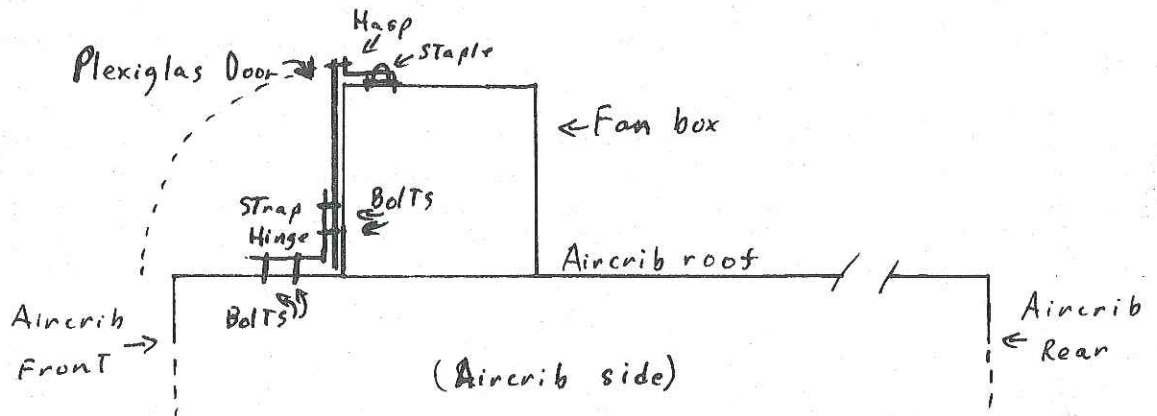 Hasp
Staple
Plexiglas Door
Fan box
Strap
Hinge
Bolts
Aircrib roof
Bolts
Aircrib
Front
Aircrib
Rear
(Aircrib side)